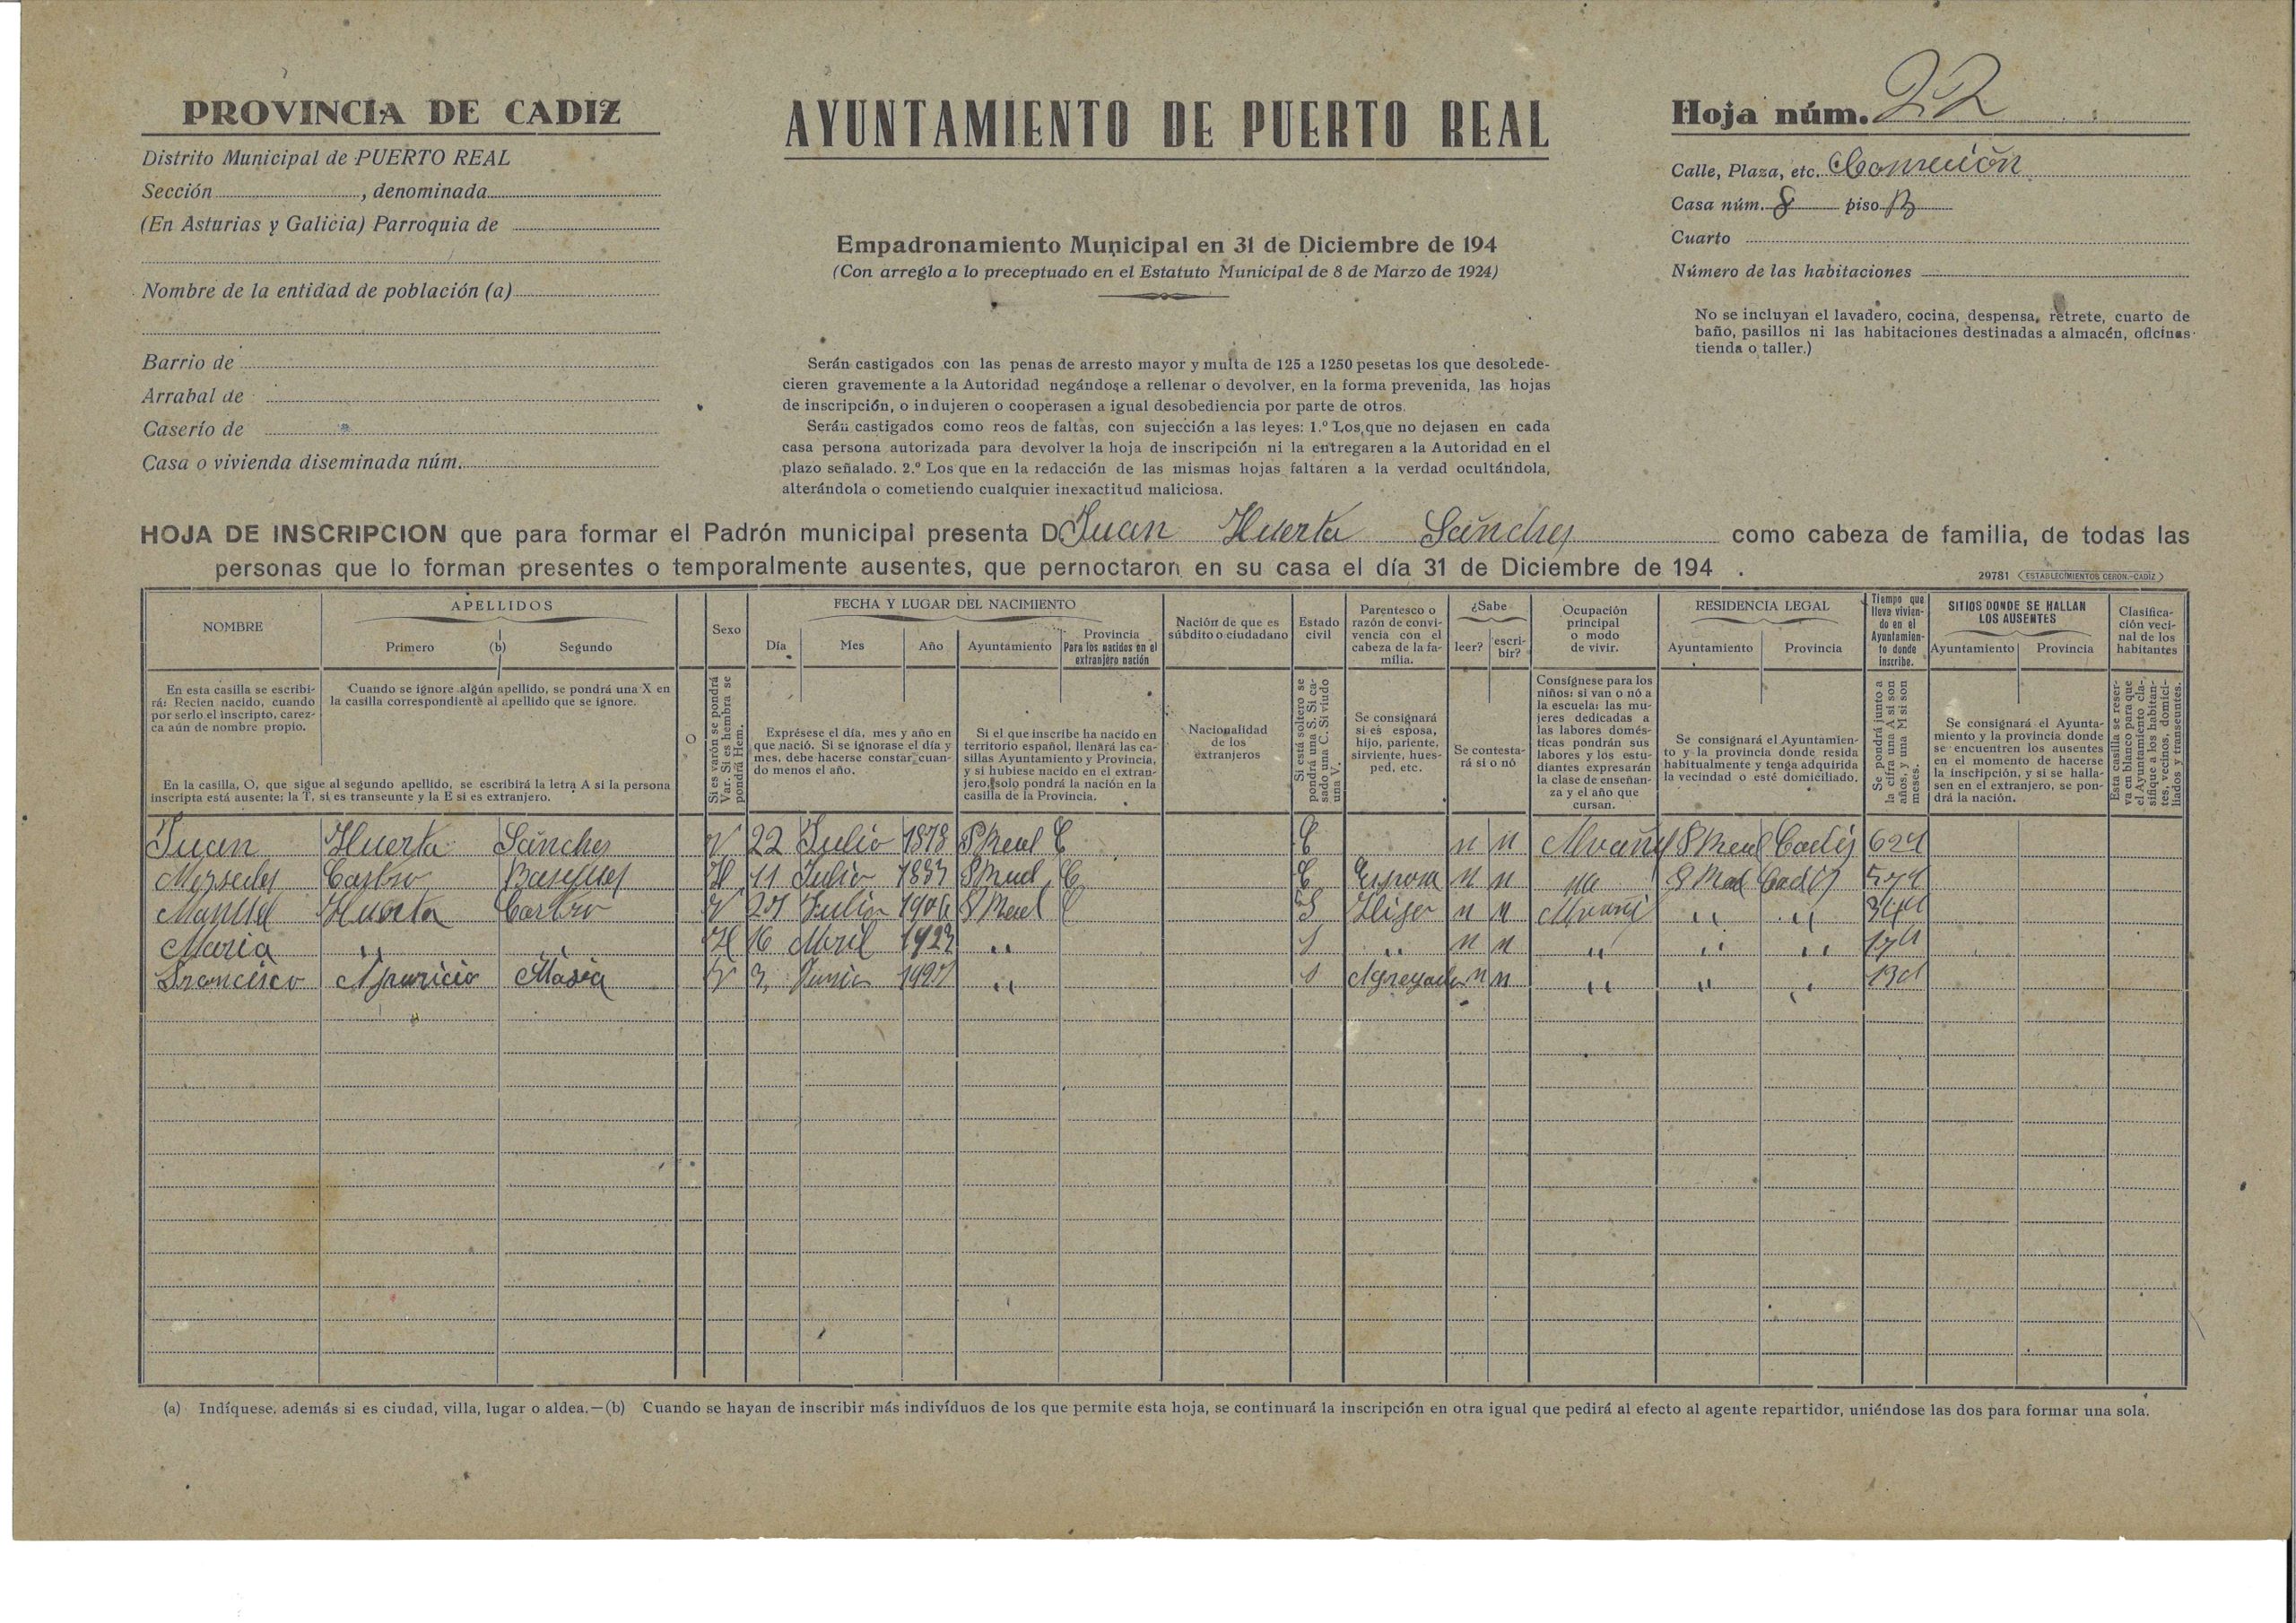 PROVINCIA DE CADIZ
Distrito Municipal de PUERTO REAL
Sección , denominada
(En Asturias y Galicia) Parroquia de
Nombre de la entidad de población (a)
Barrio de
Arrabal de
Caserío de
Casa o vivienda diseminada núm.
AYUNTAMIENTO DE PUERTO REAL
Empadronamiento Municipal en 31 de Diciembre de 194
(Con arreglo a lo preceptuado en el Estatuto Municipal de 8 de Marzo de 1924)
Serán castigados con las penas de arresto mayor y multa de 125 a 1250 pesetas los que desobede-
cieren gravemente a la Autoridad negándose a rellenar o devolver, en la forma prevenida, las hojas
de inscripción, o indujeren o cooperasen a igual desobediencia por parte de otros.
Serán castigados como reos de faltas, con sujección a las leyes: 1.º Los que no dejasen en cada
casa persona autorizada para devolver la hoja de inscripción ni la entregaren a la Autoridad en el
plazo señalado. 2.º Los que en la redacción de las mismas hojas faltaren a la verdad ocultándola,
alterándola o cometiendo cualquier inexactitud maliciosa.
Hoja núm. 22
Calle, Plaza, etc.
Casa núm. 8 piso B
Cuarto
Número de las habitaciones
No se incluyan el lavadero, cocina, despensa, retrete, cuarto de
baño, pasillos ni las habitaciones destinadas a almacén, oficinas
tienda o taller.)
HOJA DE INSCRIPCION que para formar el Padrón municipal presenta D Juan Huerta Sánchez como cabeza de familia, de todas las
personas que lo forman presentes o temporalmente ausentes, que pernoctaron en su casa el día 31 de Diciembre de 194 .
29781 (ESTABLECIMIENTOS CERON.-CADIZ)
NOMBRE
APELLIDOS
Primero (b) Segundo
Sexo
FECHA Y LUGAR DEL NACIMIENTO
Día Mes Año Ayuntamiento
Provincia
Para los nacidos en el
extranjero nación
Nación de que es
súbdito o ciudadano
Estado
civil
Parentesco o
razón de convi-
vencia con el
cabeza de la fa-
milia.
¿Sabe
leer? escri-
bir?
Ocupación
principal
o modo
de vivir.
RESIDENCIA LEGAL
Ayuntamiento Provincia
Tiempo que
lleva vivien-
do en el
Ayuntamien-
to donde
inscribe.
SITIOS DONDE SE HALLAN
LOS AUSENTES
Ayuntamiento Provincia
Clasifica-
ción veci-
nal de los
habitantes
En esta casilla se escribi-
rá: Recien nacido, cuando
por serlo el inscripto, carez-
ca aún de nombre propio.
Cuando se ignore algún apellido, se pondrá una X en
la casilla correspondiente al apellido que se ignore.
En la casilla, O, que sigue al segundo apellido, se escribirá la letra A si la persona
inscripta está ausente; la T, si es transeunte y la E si es extranjero.
O
Si es varón se pondrá
Var. Si es hembra se
pondrá Hem.
Exprésese el día, mes y año en
que nació. Si se ignorase el día y
mes, debe hacerse constar cuan-
do menos el año.
Si el que inscribe ha nacido en
territorio español, llenará las ca-
sillas Ayuntamiento y Provincia,
y si hubiese nacido en el extran-
jero, solo pondrá la nación en la
casilla de la Provincia.
Nacionalidad
de los
extranjeros
Si está soltero se
pondrá una S. Si ca-
sado una C. Si viudo
una V.
Se consignará
si es esposa,
hijo, pariente,
sirviente, hues-
ped, etc.
Se contesta-
rá si o nó
Consígnese para los
niños: si van o nó a
la escuela: las mu-
jeres dedicadas a
las labores domés-
ticas pondrán sus
labores y los estu-
diantes expresarán
la clase de enseñan-
za y el año que
cursan.
Se consignará el Ayuntamien-
to y la provincia donde resida
habitualmente y tenga adquirida
la vecindad o esté domiciliado.
Se pondrá junto a
la cifra una A si son
años, y una M si son
meses.
Se consignará el Ayunta-
miento y la provincia donde
se encuentren los ausentes
en el momento de hacerse
la inscripción, y si se halla-
sen en el extranjero, se pon-
drá la nación.
Esta casilla se reser-
va en blanco para que
el Ayuntamiento cla-
sifique a los habitan-
tes, vecinos, domici-
liados y transeuntes.
Juan Huerta Sánchez V 22 Julio 1878 P Real C C n n P Real Cadiz 62A
Mersedes Castro H 11 Julio 1883 P Real C C Esposa n n P Real Cadiz 57A
Manuel Huerta Castro V Julio 1906 P Real C S Hijo n n " " 34A
Maria " " H 16 Abril 1923 " S " n n " " " 17A
Francisco Aparicio Masia V 3 Junio 1927 " S Agregado n n " " " 13A
(a) Indíquese, además si es ciudad, villa, lugar o aldea.—(b) Cuando se hayan de inscribir más indivíduos de los que permite esta hoja, se continuará la inscripción en otra igual que pedirá al efecto al agente repartidor, uniéndose las dos para formar una sola.